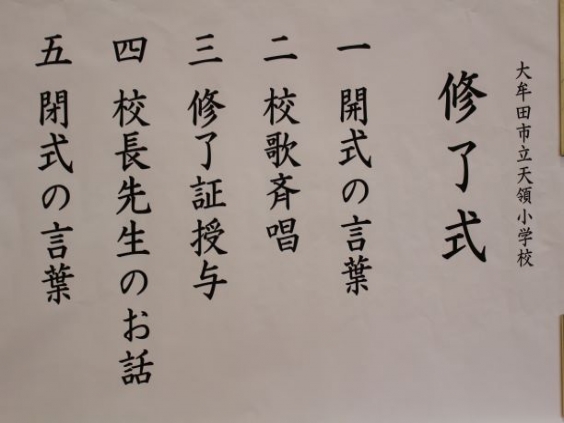 大牟田市立天領小学校
修了式
一 開式の言葉
二 校歌斉唱
三 修了証授与
四 校長先生のお話
五 閉式の言葉